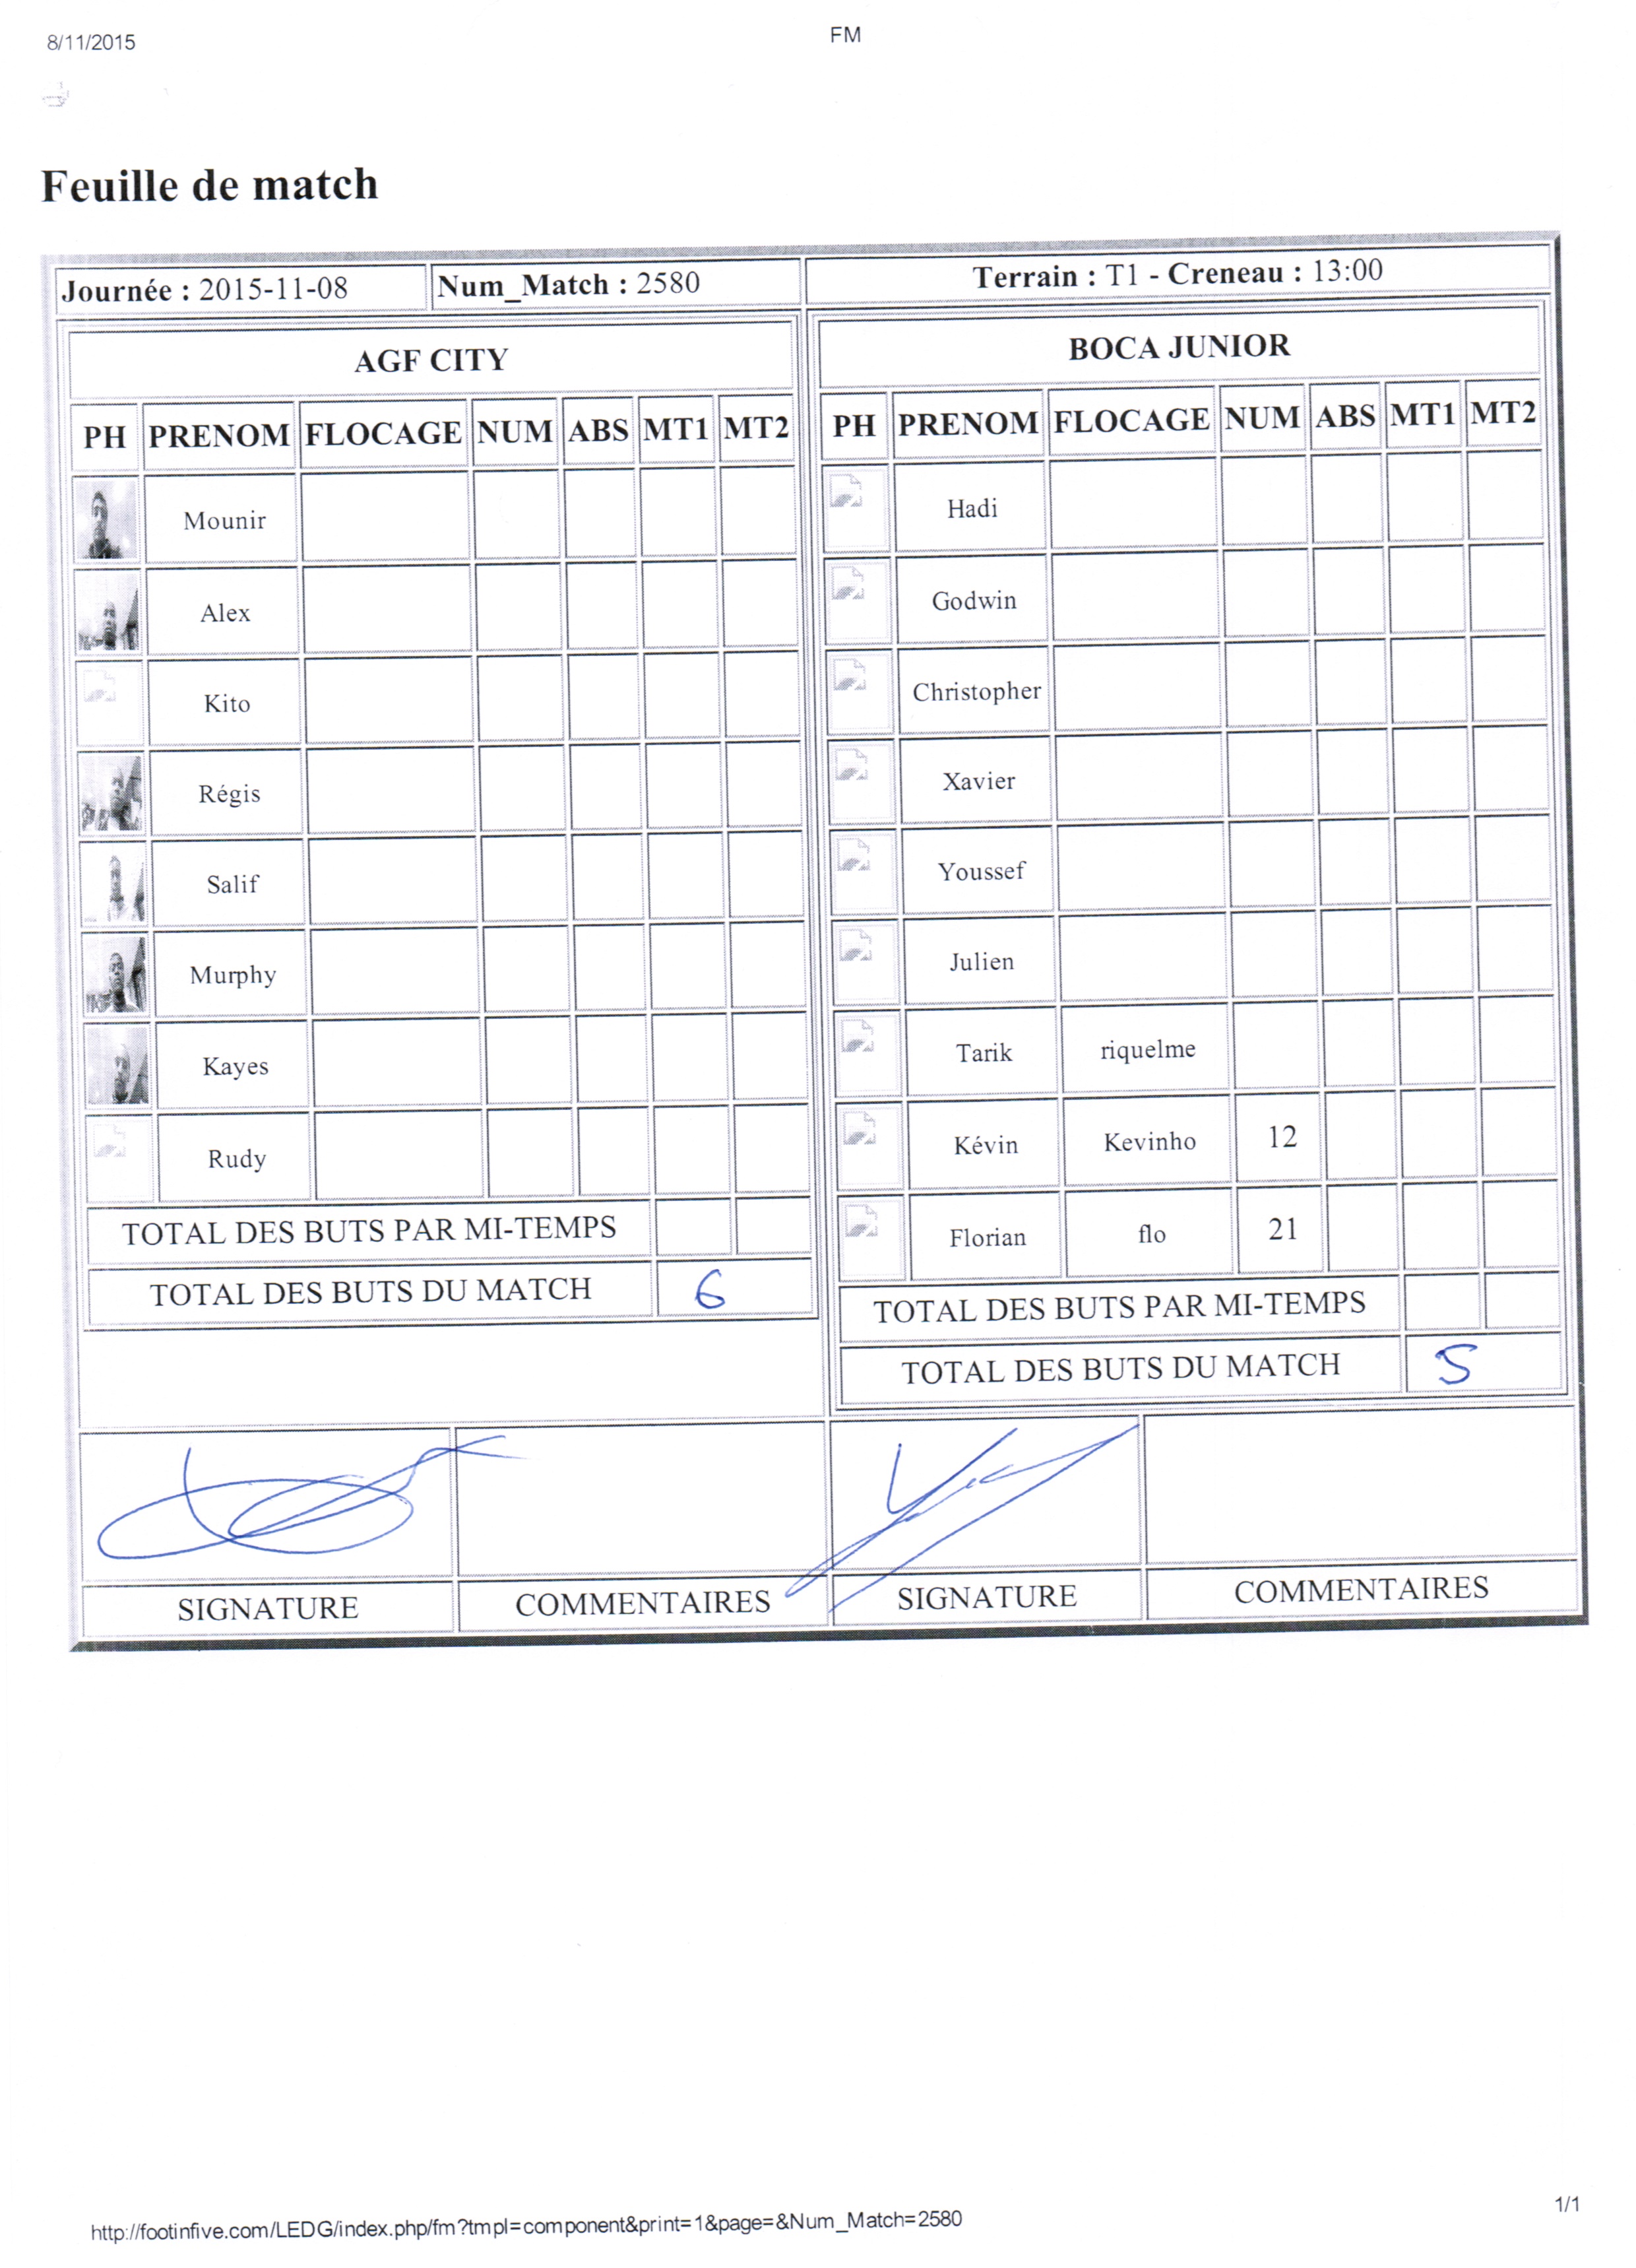 8/11/2015
FM
Feuille de match
Journée : 2015-11-08
Num_Match : 2580
Terrain : T1 - Creneau : 13:00
AGF CITY
PH PRENOM FLOCAGE NUM ABS MT1 MT2
Mounir
Alex
Kito
Régis
Salif
Murphy
Kayes
Rudy
TOTAL DES BUTS PAR MI-TEMPS
TOTAL DES BUTS DU MATCH 6
BOCA JUNIOR
PH PRENOM FLOCAGE NUM ABS MT1 MT2
Hadi
Godwin
Christopher
Xavier
Youssef
Julien
Tarik riquelme
Kévin Kevinho 12
Florian flo 21
TOTAL DES BUTS PAR MI-TEMPS
TOTAL DES BUTS DU MATCH 5
SIGNATURE COMMENTAIRES SIGNATURE COMMENTAIRES
http://footinfive.com/LEDG/index.php/fm?tmpl=component&print=1&page=&Num_Match=2580
1/1